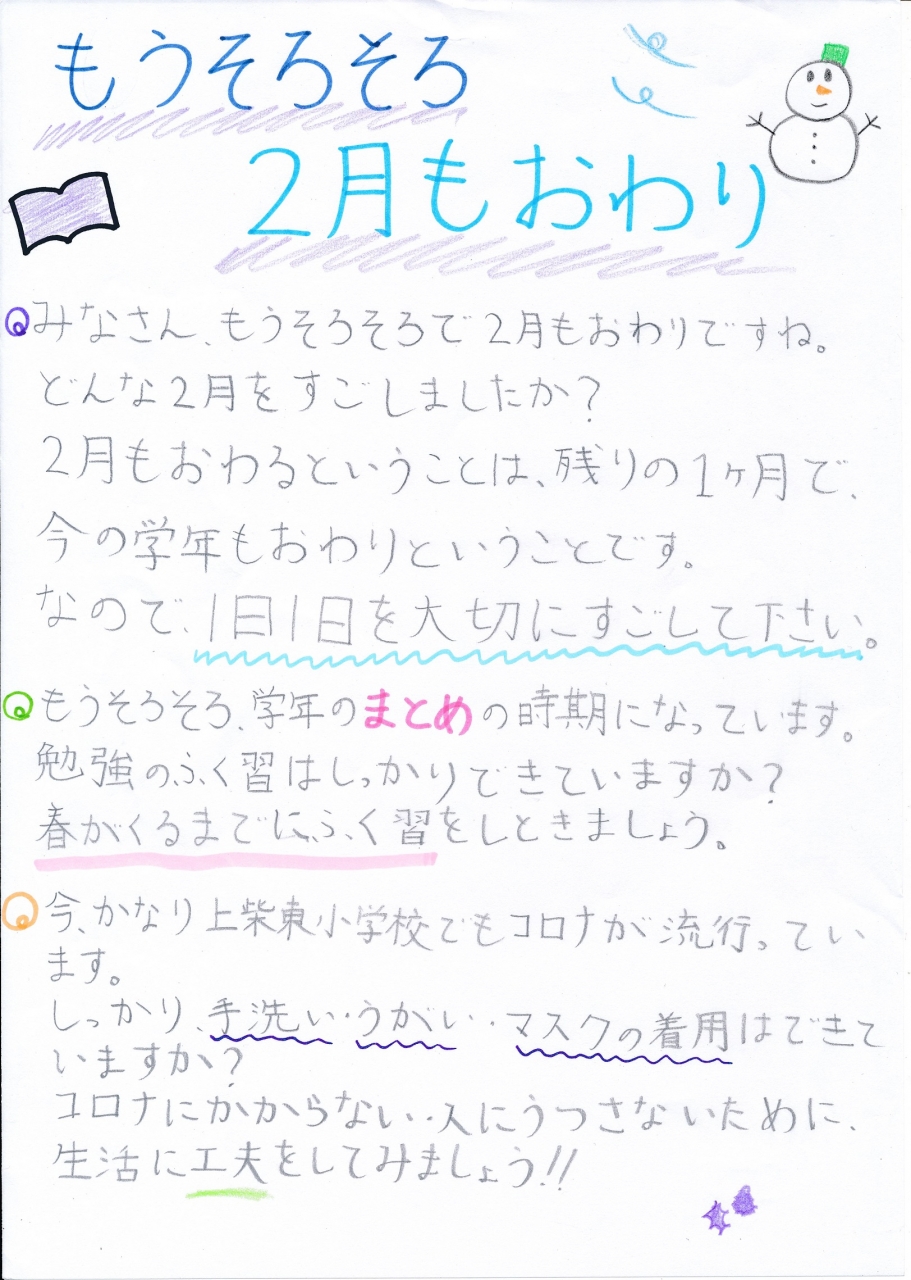 もうそろそろ
2月もおわり
みなさん、もうそろそろで2月もおわりですね。
どんな2月をすごしましたか?
2月もおわるということは、残りの1ヶ月で、
今の学年もおわりということです。
なので、1日1日を大切にすごして下さい。
もうそろそろ、学年のまとめの時期になっています。
勉強のふく習はしっかりできていますか?
春がくるまでにふく習をしときましょう。
今、かなり上柴東小学校でもコロナが流行ってい
ます。
しっかり、手洗い・うがい・マスクの着用はできて
いますか?
コロナにかからない・人にうつさないために、
生活に工夫をしてみましょう!!